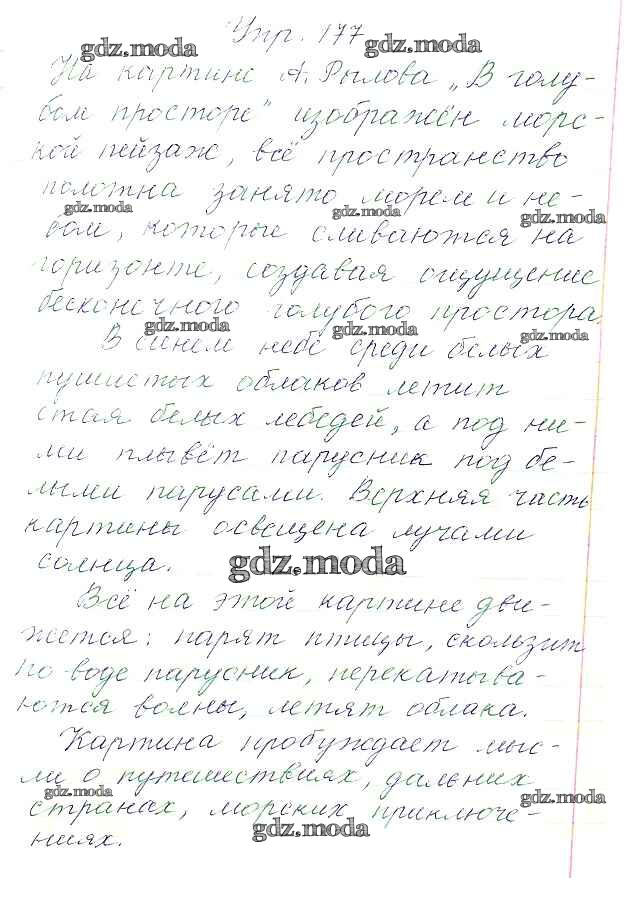 Упр. 177
gdz.moda gdz.moda
На картине А. Рылова „В голу-
бом просторе" изображён морс-
кой пейзаж, всё пространство
полотна занято морем и не-
gdz.moda gdz.moda gdz.moda
бом, которые сливаются на
горизонте, создавая ощущение
бесконечного голубого простора.
gdz.moda gdz.moda gdz.moda
В синем небе среди белых
пушистых облаков летит
стая белых лебедей, а под ни-
ми плывёт парусник под бе-
лыми парусами. Верхняя часть
картины освещена лучами
солнца. gdz.moda
Всё на этой картине дви-
жется: парят птицы, скользит
по воде парусник, перекатыва-
ются волны, летят облака.
Картина пробуждает мыс-
ли о путешествиях, дальних
gdz.moda gdz.moda
странах, морских приключе-
gdz.moda
ниях.